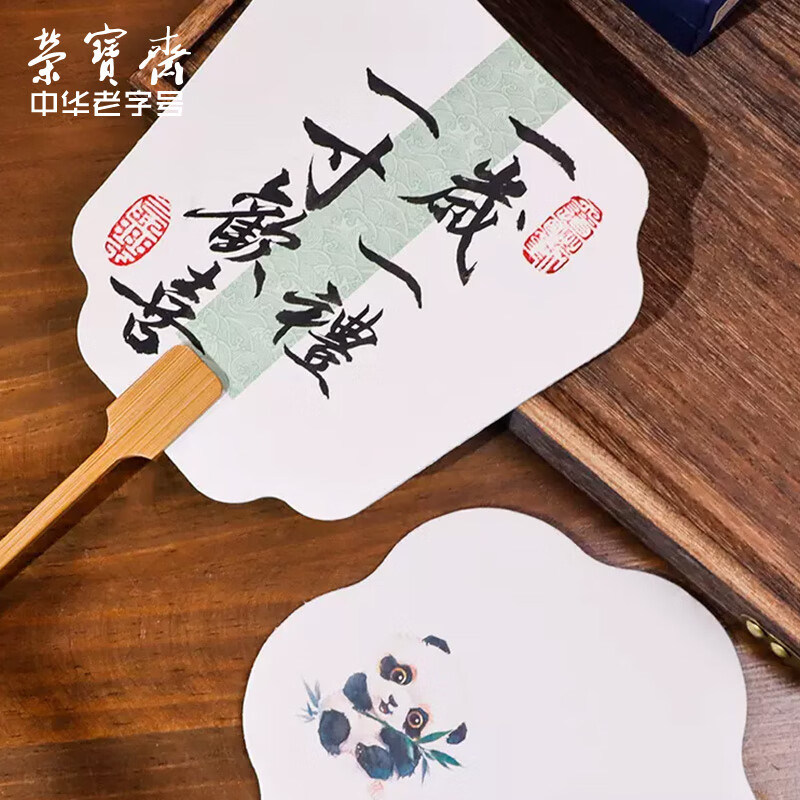 榮寶齋
中华老字号
一歲一禮
一寸歡喜